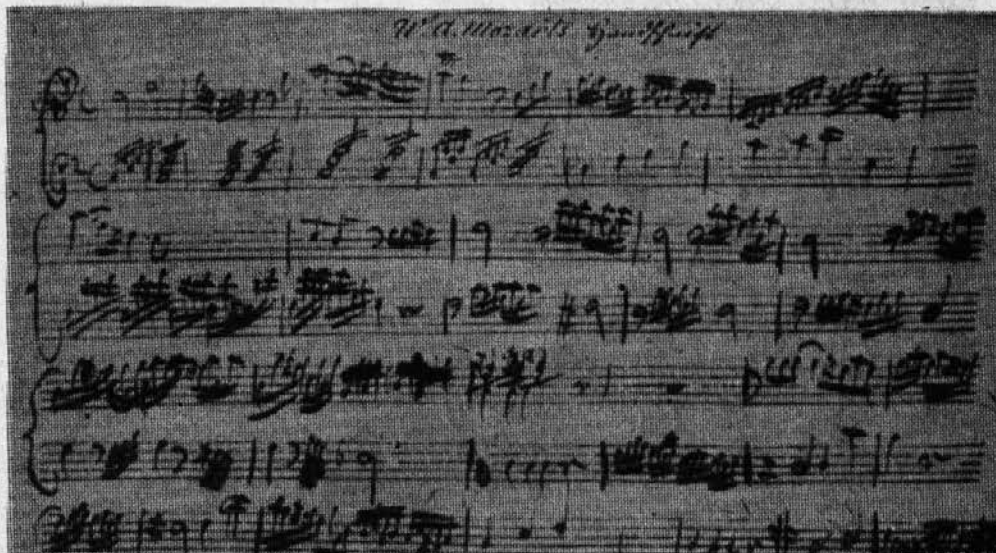 W. A. Mozarts Handschrift